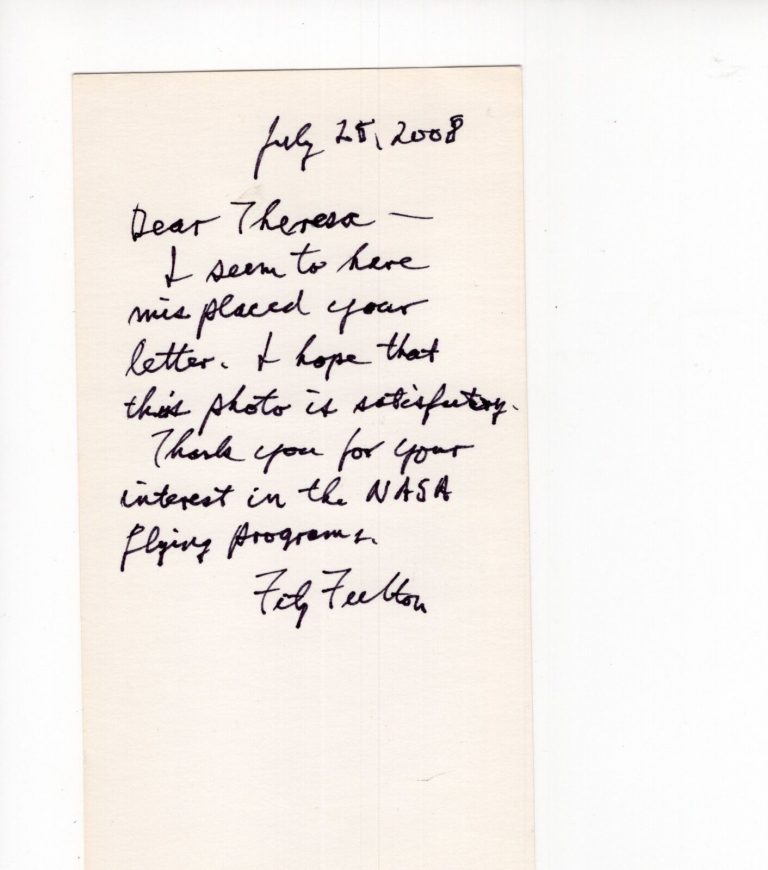 July 25, 2008
Dear Theresa —
I seem to have
misplaced your
letter. I hope that
this photo is satisfactory.
Thank you for your
interest in the NASA
flying programs.
Fitz Fulton